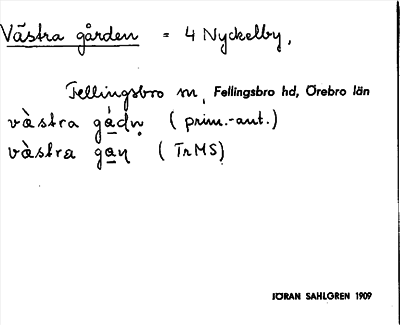 Västra gården = 4 Nyckelby,
Fellingsbro sn, Fellingsbro hd, Örebro län
vàstra gádn̥ (prim.-ant.)
vàstra gaɳ (TrMS)
JÖRAN SAHLGREN 1909